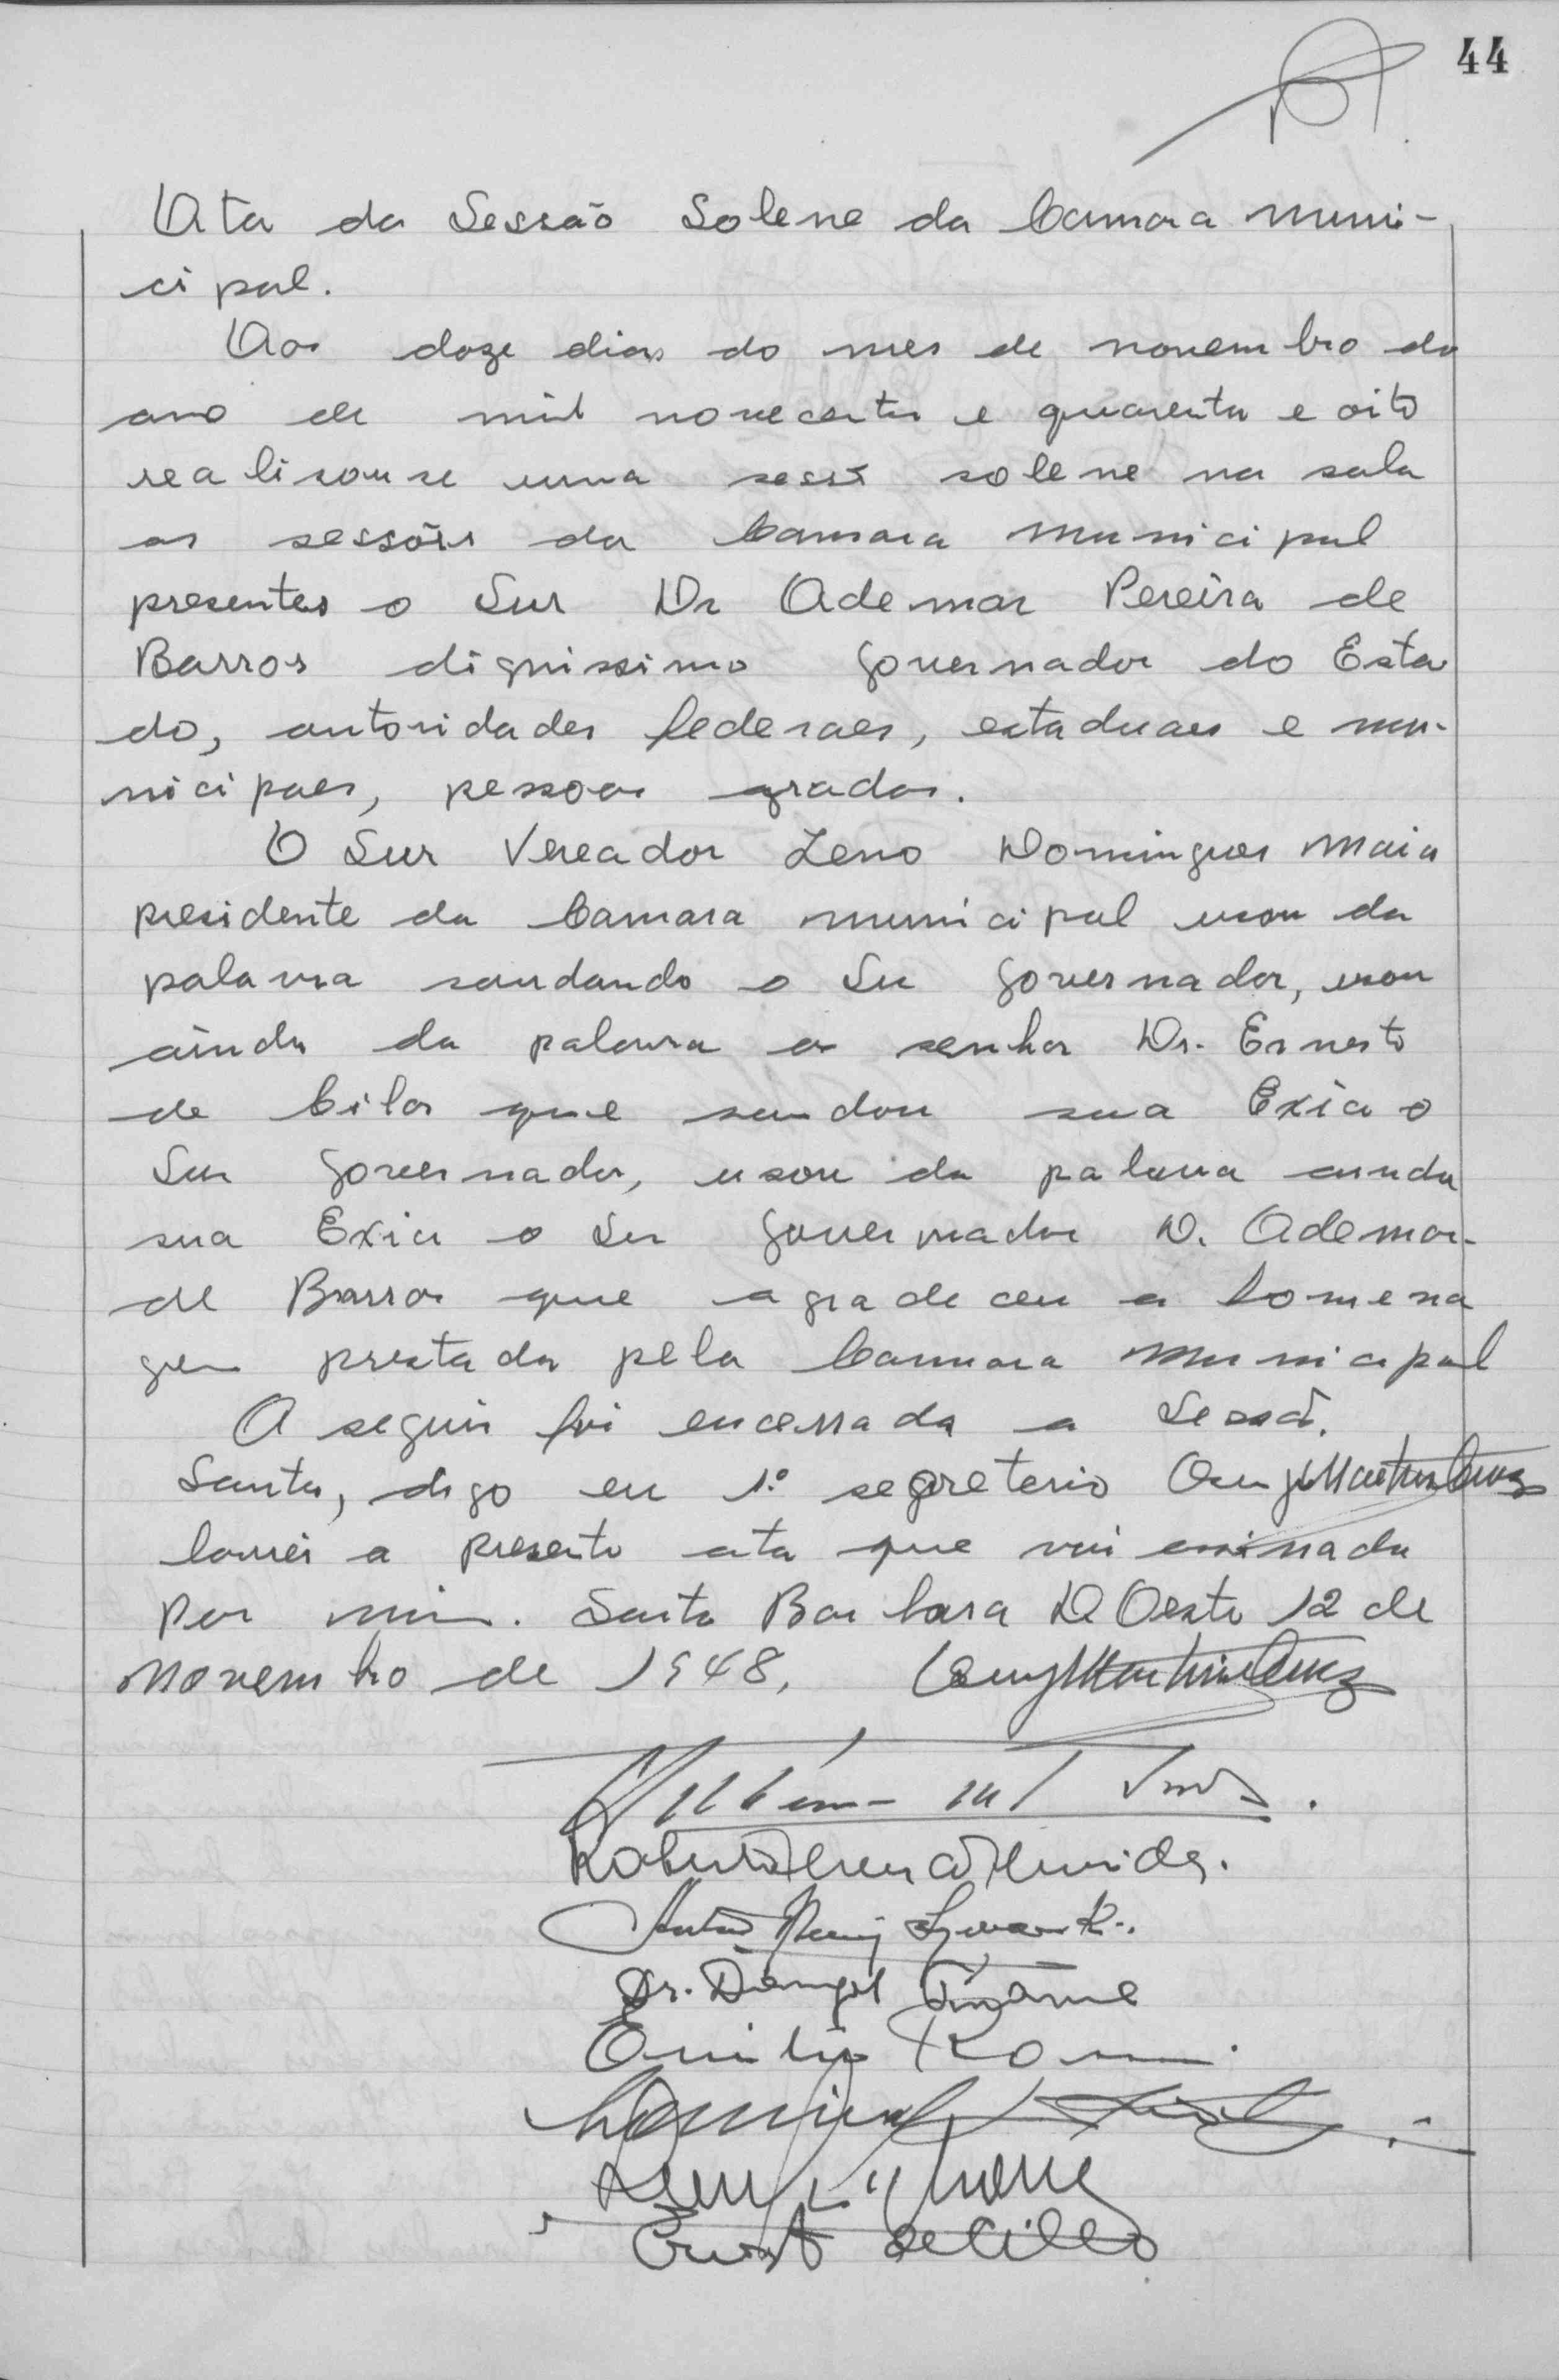 44
Ata da Sessão Solene da Camara Muni-
cipal.
Aos doze dias do mes de novembro do
ano de mil novecentos e quarenta e oito
realisouse uma sessã solene na sala
as sessões da Camara Municipal
presentes o Snr Dr Ademar Pereira de
Barros dignissimo Governador do Esta
do, autoridades federaes, estaduaes e mu-
nicipaes, pessoas gradas.
O Snr Vereador Zeno Domingues Maia
presidente da Camara Municipal usou da
palavra saudando o Snr Governador, usou
ainda da palavra o senhor Dr. Ernesto
de Cilos que saudou sua Exia o
Snr Governador, usou da palavra ainda
sua Exia o Snr Governador D. Ademar
de Barros que agradeceu a homena
gem prestada pela Camara Municipal
A seguir foi encerrada a Sessã.
Santa, digo eu 1º segreterio
lavrei a presente ata que vai assinada
por mim. Santa Barbara D Oeste 12 de
Novembro de 1948,
Dr.
Emilio Romi
de Cillo